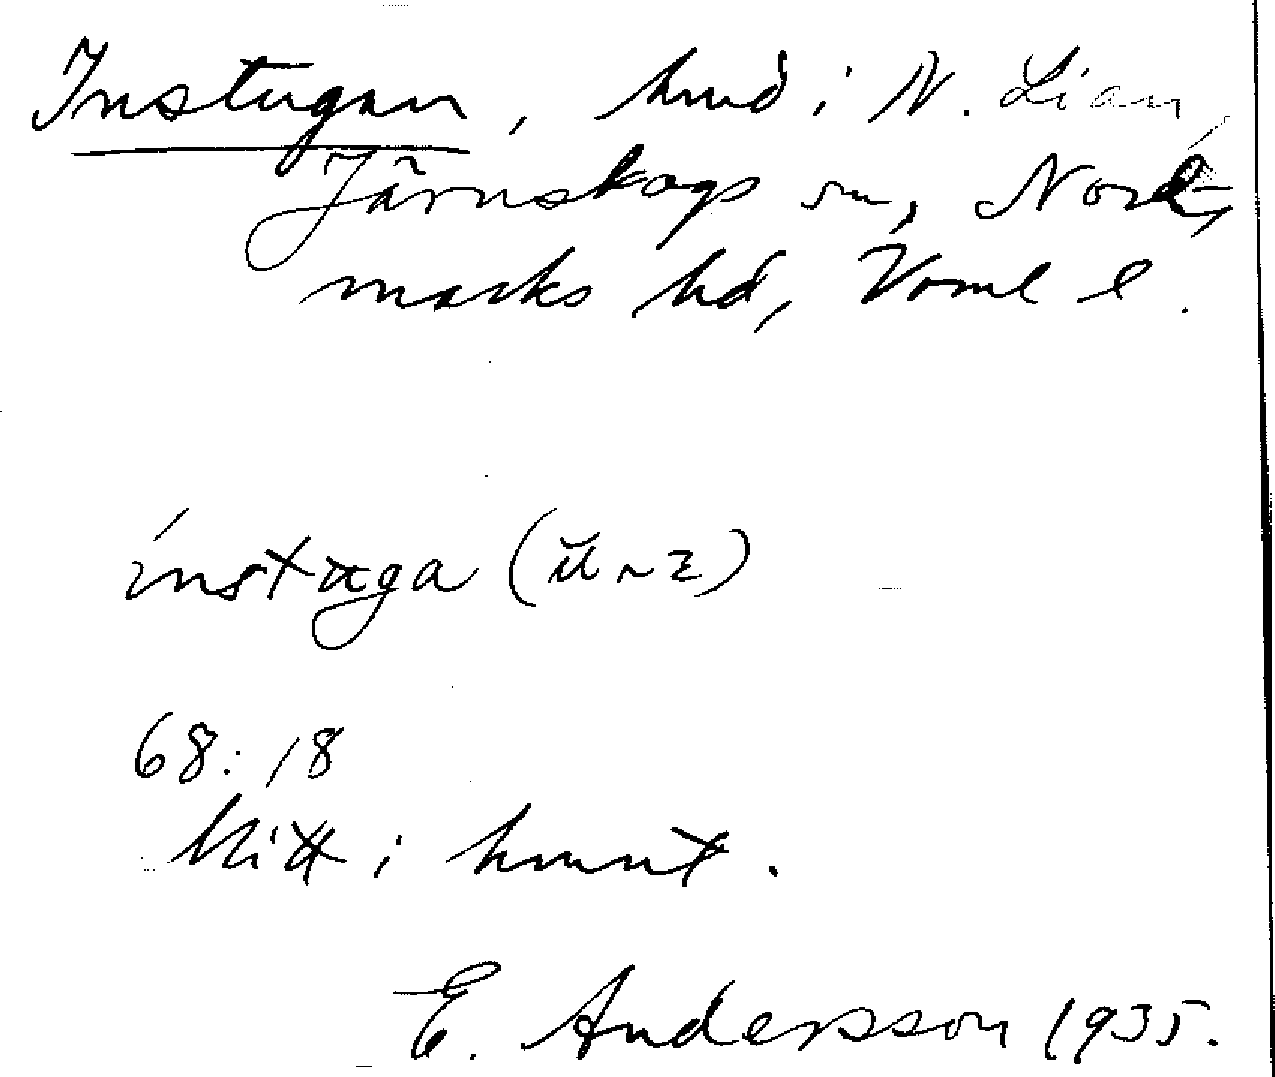 Instugan, hmd i N. Lian,
Järnskogs sn, Nord-
marks hd, Vrml l.
instuga (ŭ~z)
68:18
Mitt i hmnt.
E. Andersson 1935.